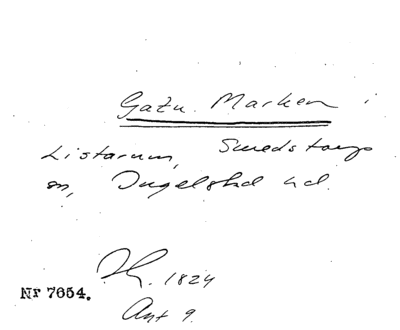 Gatu Marken i
Listarum, Smedstorps
sn, Ingelstad hd.
1824
Nr 7654.
Ant 9.